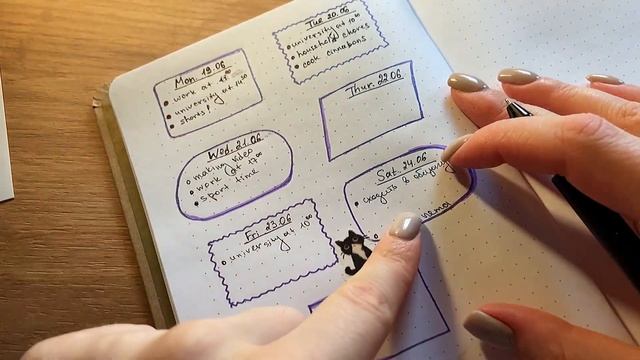 Mon 19.06
work at
university at 14:00
shorts!
Tue 20.06
university at 10:00
household chores
cook cinnabons
Wed. 21.06
making video
work (at 17:00
sport time
Thur. 22.06
Fri 23.06
university at 10:00
Sat. 24.06
сходить в